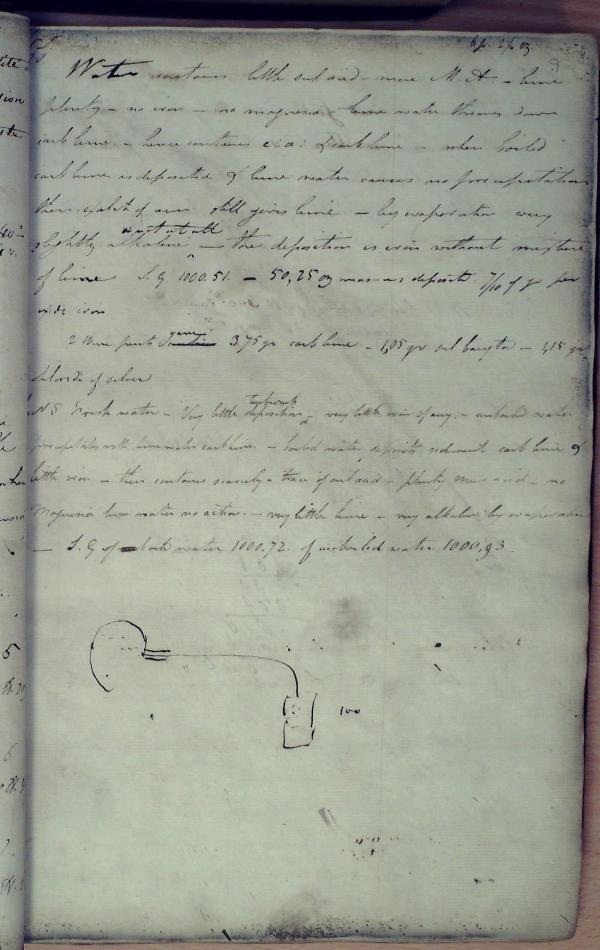 Water contains little sul acid - more M. A. - lime
plenty - no iron - no magnesia - lime water throws down
carb lime - hence contains c. a. & carb lime - when boiled
carb lime is deposited & lime water causes no precipitation
then oxalate of amm still gives lime - by evaporation very
slightly alkaline not at all - the deposition is iron without mixture
of lime S. G 1000.51. - 50,25 oz measures deposits 7/10 of gr per
oxide iron
2 Wine pints gave 3,75 gr carb lime - 1,05 gr sul baryta - 1,15 gr
chloride of silver
N 5 Fresh water - Very little deposition - very little iron if any. - unboiled water
precipitates with lime water carb lime. - boiled water deposits sediment carb lime &
little iron - then contains scarcely a trace of sul acid - plenty mur acid - no
Magnesia lime water no action. - very little lime - very alkaline by evaporation
- S. G of boild water 1000.72. of unboiled water 1000,93
100